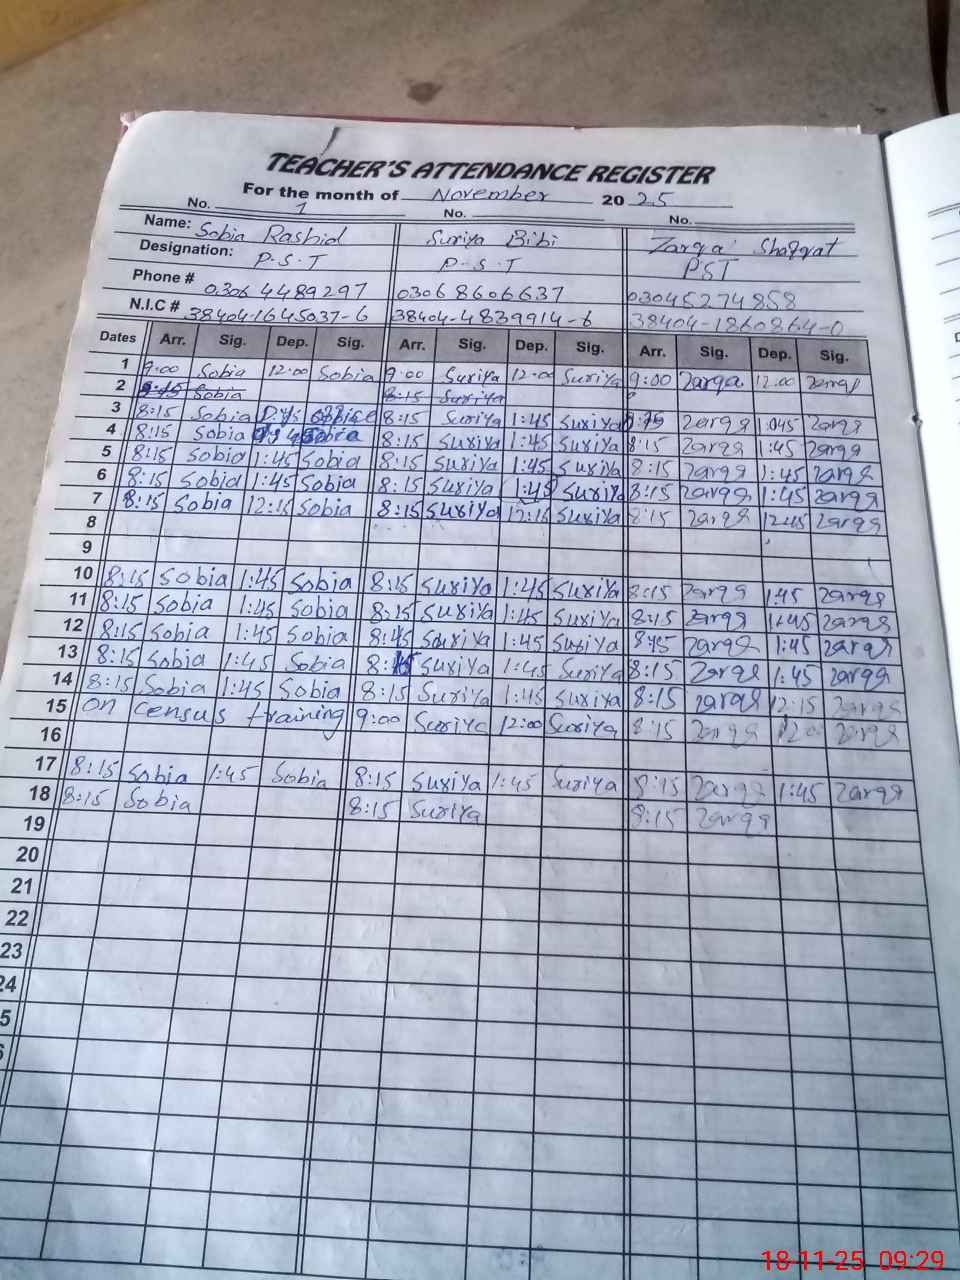 TEACHER'S ATTENDANCE REGISTER
For the month of November 20 25
No. 1 No. No.
Name: Sobia Rashid Suriya Bibi Zarqa Shafqat
Designation: P.S.T P-S.T PST
Phone # 0306 4489297 03068606637 03045274858
N.I.C # 38404-1645037-6 38404-4839914-6 38404-1860864-0
Dates Arr. Sig. Dep. Sig. Arr. Sig. Dep. Sig. Arr. Sig. Dep. Sig.
1 9:00 Sobia 12:00 Sobia 9:00 Suriya 12:00 Suriya 9:00 Zarqa 12:00 Zarqa
2 8:15 Sobia 8:15 Suriya
3 8:15 Sobia office 8:15 Suriya 1:45 Suriya 8:15 Zarqa 1:045 Zarqa
4 8:15 Sobia 1:45 Sobia 8:15 Suriya 1:45 Suriya 8:15 Zarqa 1:45 Zarqa
5 8:15 Sobia 1:45 Sobia 8:15 Suriya 1:45 Suriya 8:15 Zarqa 1:45 Zarqa
6 8:15 Sobia 1:45 Sobia 8:15 Suriya 1:45 Suriya 8:15 Zarqa 1:45 Zarqa
7 8:15 Sobia 12:15 Sobia 8:15 Suriya 12:15 Suriya 8:15 Zarqa 12:15 Zarqa
8
9
10 8:15 Sobia 1:45 Sobia 8:15 Suriya 1:45 Suriya 8:15 Zarqa 1:45 Zarqa
11 8:15 Sobia 1:45 Sobia 8:15 Suriya 1:45 Suriya 8:15 Zarqa 1:45 Zarqa
12 8:15 Sobia 1:45 Sobia 8:15 Suriya 1:45 Suriya 8:15 Zarqa 1:45 Zarqa
13 8:15 Sobia 1:45 Sobia 8:15 Suriya 1:45 Suriya 8:15 Zarqa 1:45 Zarqa
14 8:15 Sobia 1:45 Sobia 8:15 Suriya 1:45 Suriya 8:15 Zarqa 12:15 Zarqa
15 on census training 9:00 Suriya 12:00 Suriya 8:15 Zarqa Zarqa
16
17 8:15 Sobia 1:45 Sobia 8:15 Suriya 1:45 Suriya 8:15 Zarqa 1:45 Zarqa
18 8:15 Sobia 8:15 Suriya 8:15 Zarqa
19
20
21
22
23
24
5
18-11-25 09:29